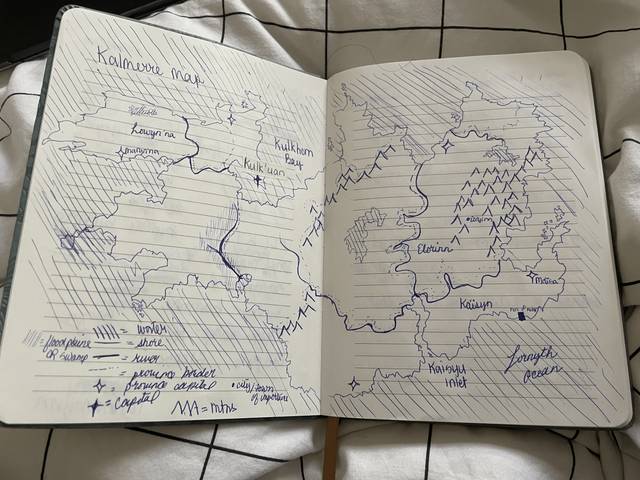 Kalmerre map
Lowyn'na
Kulkhem
Bay
Kulk'uan
= water
= shore
OR swamp
= river
= province border
= province capital
• city/town
of importance
= capital
= mtns
Elorinn
Kaisyn
Kaisyu
Inlet
Forsyth
ocean